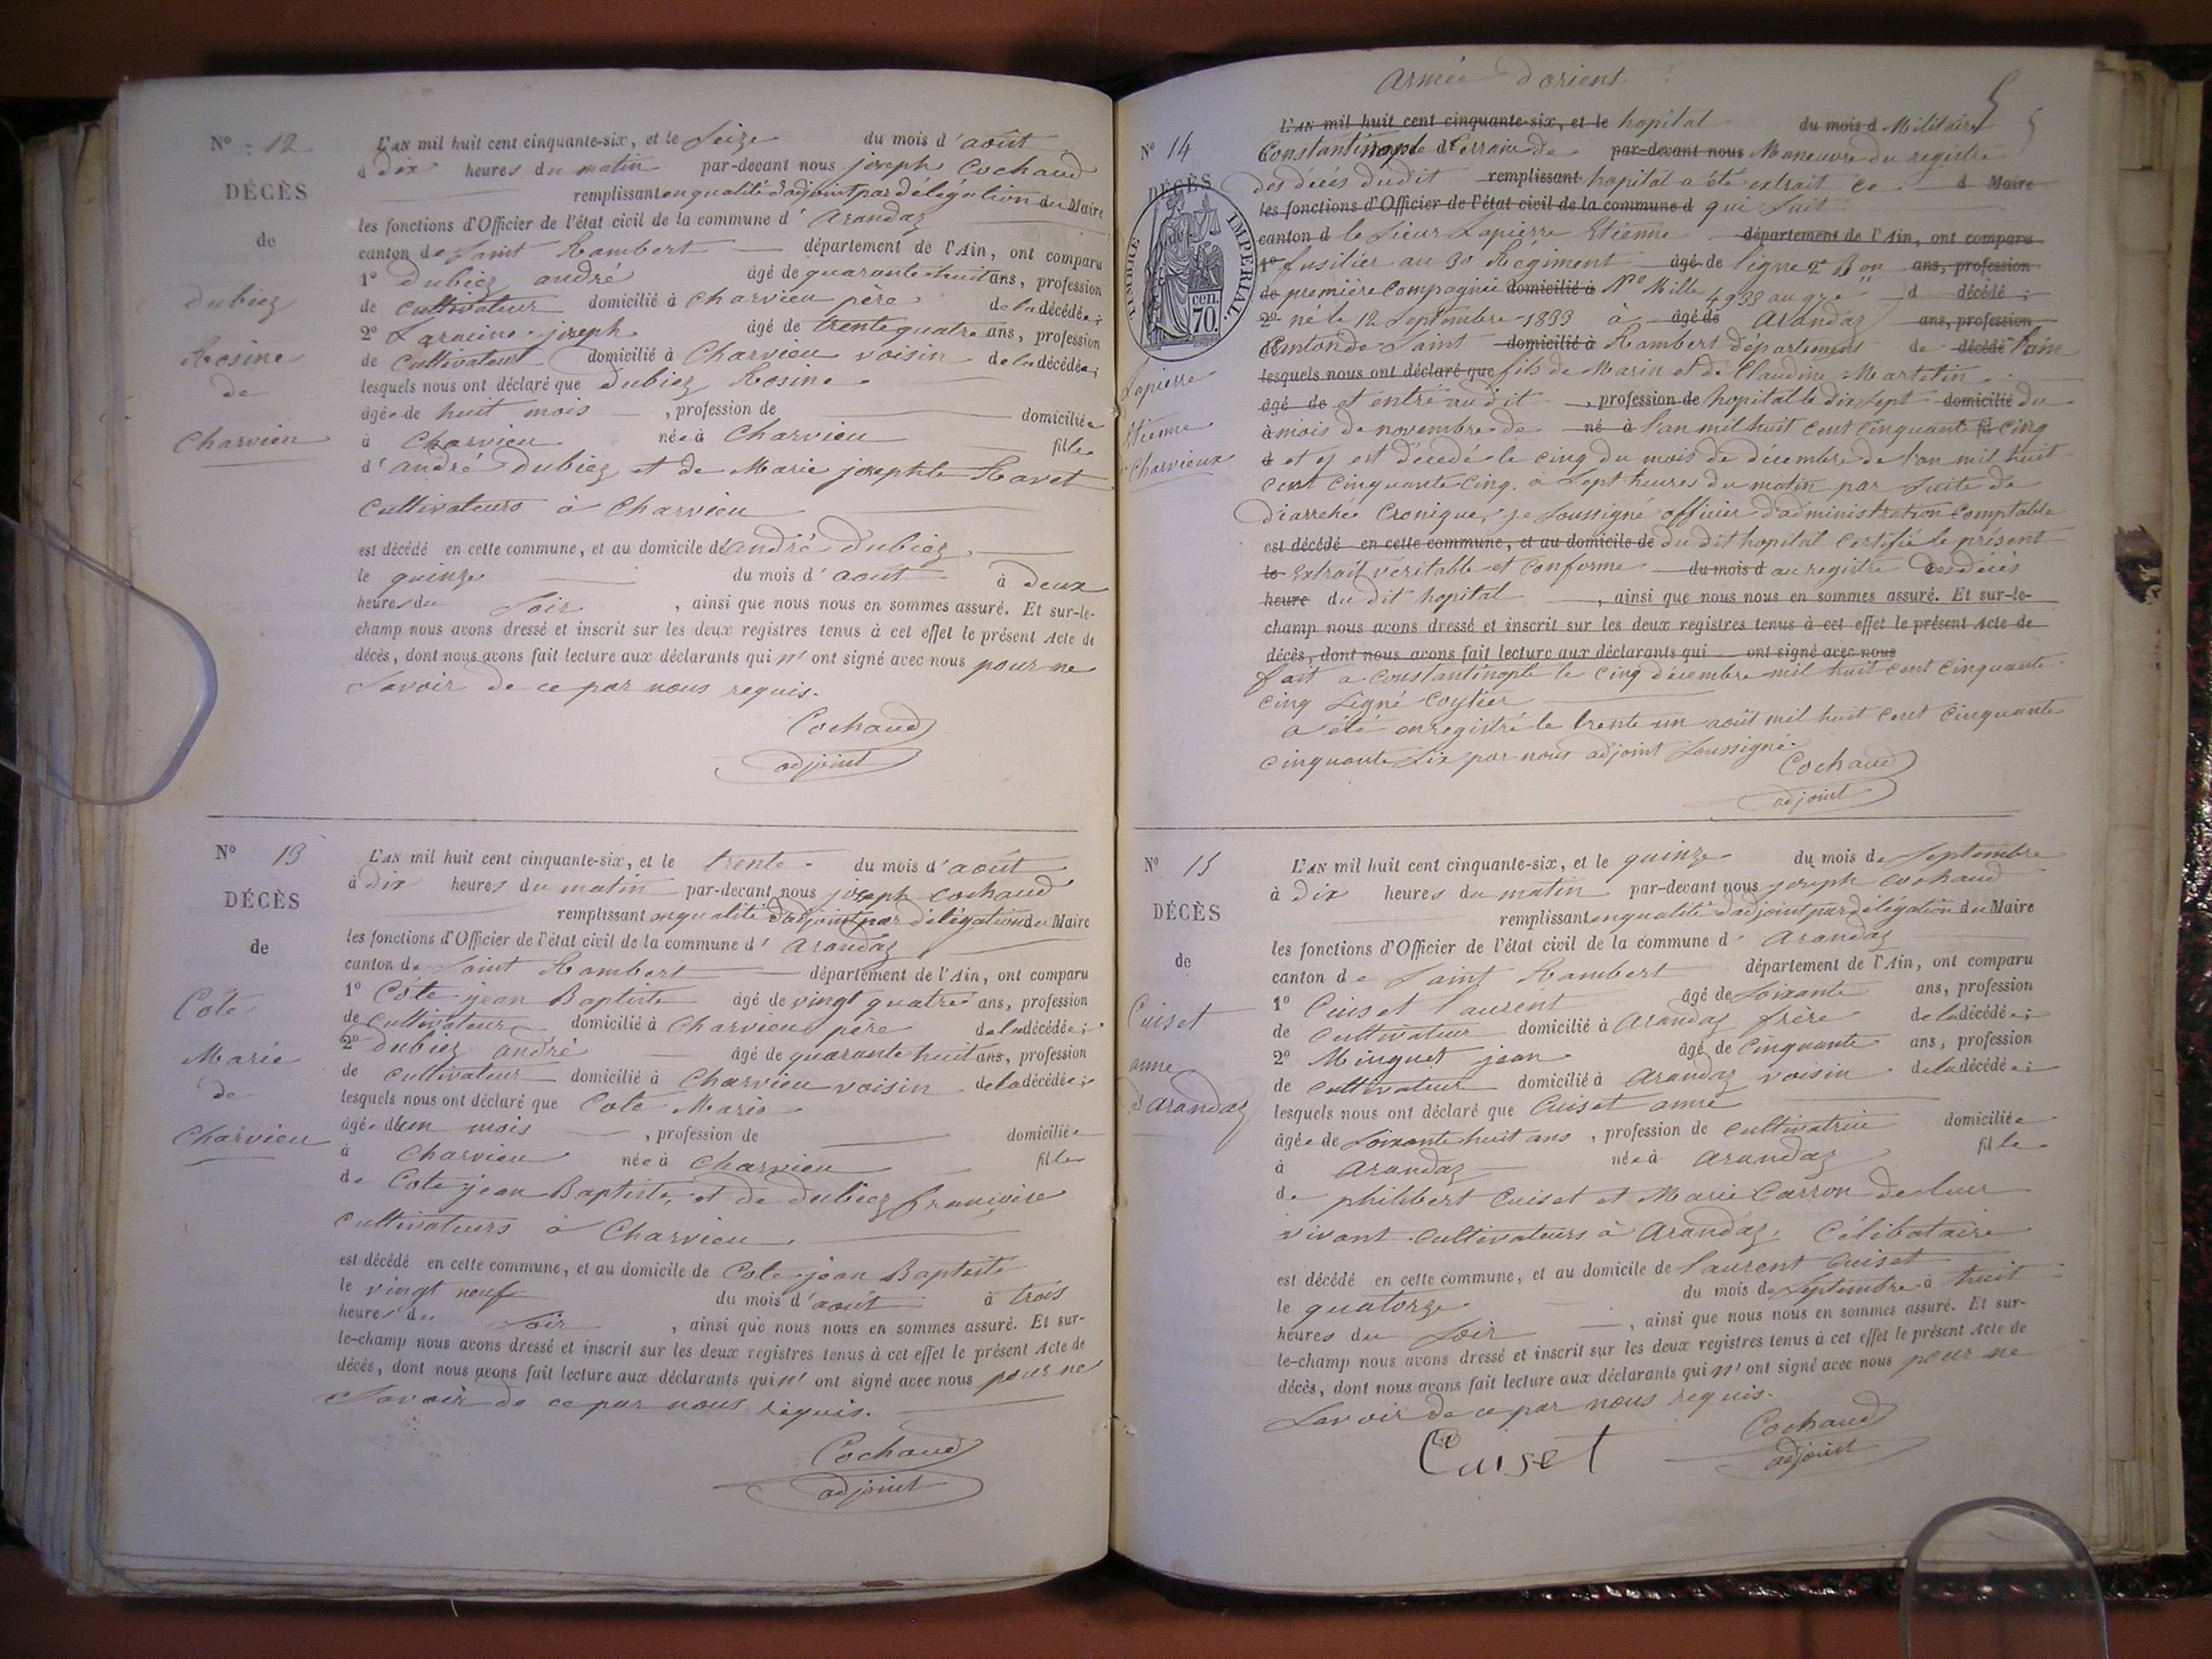 N° 12
DÉCÈS
de
Dubiez
Rosine
de
Charvieu
L'AN mil huit cent cinquante-six, et le Seize du mois d'août
à dix heures du matin par-devant nous joseph Cochaud
remplissant en qualité d'adjoint par délégation du Maire
les fonctions d'Officier de l'état civil de la commune d' Arandaz
canton de Saint Rambert département de l'Ain, ont comparu
1° Dubiez andré âgé de quarante huit ans, profession
de cultivateur domicilié à Charvieu père de la décédée;
2° Laracine joseph âgé de trente quatre ans, profession
de Cultivateur domicilié à Charvieu voisin de la décédée;
lesquels nous ont déclaré que Dubiez Rosine
âgée de huit mois , profession de domiciliée
à Charvieu née à Charvieu fille
d'andré Dubiez et de Marie josephte Ravet
Cultivateurs à Charvieu
est décédé en cette commune, et au domicile de andré Dubiez
le quinze du mois d'août à Deux
heures du Soir , ainsi que nous nous en sommes assuré. Et sur-le-
champ nous avons dressé et inscrit sur les deux registres tenus à cet effet le présent Acte de
décès, dont nous avons fait lecture aux déclarants qui n'ont signé avec nous pour ne
Savoir de ce par nous requis.
Cochaud
adjoint
N° 13
DÉCÈS
de
Cote
Marie
de
Charvieu
L'AN mil huit cent cinquante-six, et le trente du mois d'août
à dix heures du matin par-devant nous joseph Cochaud
remplissant en qualité d'adjoint par délégation du Maire
les fonctions d'Officier de l'état civil de la commune d' Arandaz
canton de Saint Rambert département de l'Ain, ont comparu
1° Côte jean Baptiste âgé de vingt quatre ans, profession
de Cultivateur domicilié à Charvieu père de la décédée;
2° Dubiez andré âgé de quarante huit ans, profession
de cultivateur domicilié à Charvieu voisin de la décédée;
lesquels nous ont déclaré que Cote Marie
âgée d'un mois , profession de domiciliée
à Charvieu née à Charvieu fille
de Cote jean Baptiste, et de Dubiez françoise
Cultivateurs à Charvieu.
est décédé en cette commune, et au domicile de Cote jean Baptiste
le vingt neuf du mois d'août à trois
heures du Soir , ainsi que nous nous en sommes assuré. Et sur-
le-champ nous avons dressé et inscrit sur les deux registres tenus à cet effet le présent Acte de
décès, dont nous avons fait lecture aux déclarants qui n'ont signé avec nous pour ne
Savoir de ce par nous requis.
Cochaud
adjoint
Armée d'orient
N° 14
DÉCÈS
de
TIMBRE IMPÉRIAL
70 cen.
Lapierre
Etienne
de Charvieux
L'AN mil huit cent cinquante-six, et le hopital du mois d Militaire
Constantinople Terrain de par-devant nous Manœuvre du registre
des décès dudit remplissant hopital a été extrait ce d Maire
les fonctions d'Officier de l'état civil de la commune d qui Suit
canton d le Sieur Lapierre Etienne département de l'Ain, ont comparu
1° fusilier au 30 Régiment âgé de ligne 2e Bon ans, profession
de première Compagnie domicilié à No Mille 4933 d décédé;
2° né le 12 Septembre 1833 à âgé de Arandaz ans, profession
Canton de Saint domicilié à Rambert département de décédé l'ain
lesquels nous ont déclaré que fils de Marin et de Claudine Martelin
âgé de et entré audit , profession de hopital le dix Sept domicilié du
à mois de novembre de né à l'an mil huit cent Cinquante cinq
d et y est décédé le cinq du mois de décembre de l'an mil huit
cent cinquante Cinq. à Sept heures du matin par Suite de
Diarrehée Cronique, je Soussigné officier d'administration Comptable
est décédé en cette commune, et au domicile de du dit hopital Certifié le présent
le Extrait véritable et Conforme du mois d au registre des décès
heure du dit hopital , ainsi que nous nous en sommes assuré. Et sur-le-
champ nous avons dressé et inscrit sur les deux registres tenus à cet effet le présent Acte de
décès, dont nous avons fait lecture aux déclarants qui ont signé avec nous
fait a Constantinople le Cinq décembre mil huit cent Cinquante
Cinq Signé Coytier
a été enregistré le trente un août mil huit Cent Cinquante
Cinquante Six par nous adjoint Soussigné.
Cochaud
adjoint
N° 15
DÉCÈS
de
Cuiset
anne
d'Arandaz
L'AN mil huit cent cinquante-six, et le quinze du mois de Septembre
à dix heures du matin par-devant nous joseph Cochaud
remplissant en qualité d'adjoint par délégation du Maire
les fonctions d'Officier de l'état civil de la commune d' Arandaz
canton de Saint Rambert département de l'Ain, ont comparu
1° Cuiset laurent âgé de Soixante ans, profession
de Cultivateur domicilié à Arandaz frère de la décédée;
2° Minguet jean âgé de Cinquante ans, profession
de Cultivateur domicilié à Arandaz voisin de la décédée;
lesquels nous ont déclaré que Cuiset anne
âgée de Soixante huit ans , profession de Cultivatrice domiciliée
à Arandaz née à Arandaz fille
de philibert Cuiset et Marie Carron de leur
vivant Cultivateurs à Arandaz. Célibataire
est décédé en cette commune, et au domicile de laurent Cuiset
le quatorze du mois de Septembre à huit
heures du Soir , ainsi que nous nous en sommes assuré. Et sur-
le-champ nous avons dressé et inscrit sur les deux registres tenus à cet effet le présent Acte de
décès, dont nous avons fait lecture aux déclarants qui n'ont signé avec nous pour ne
Savoir de ce par nous requis.
Cuiset
Cochaud
adjoint